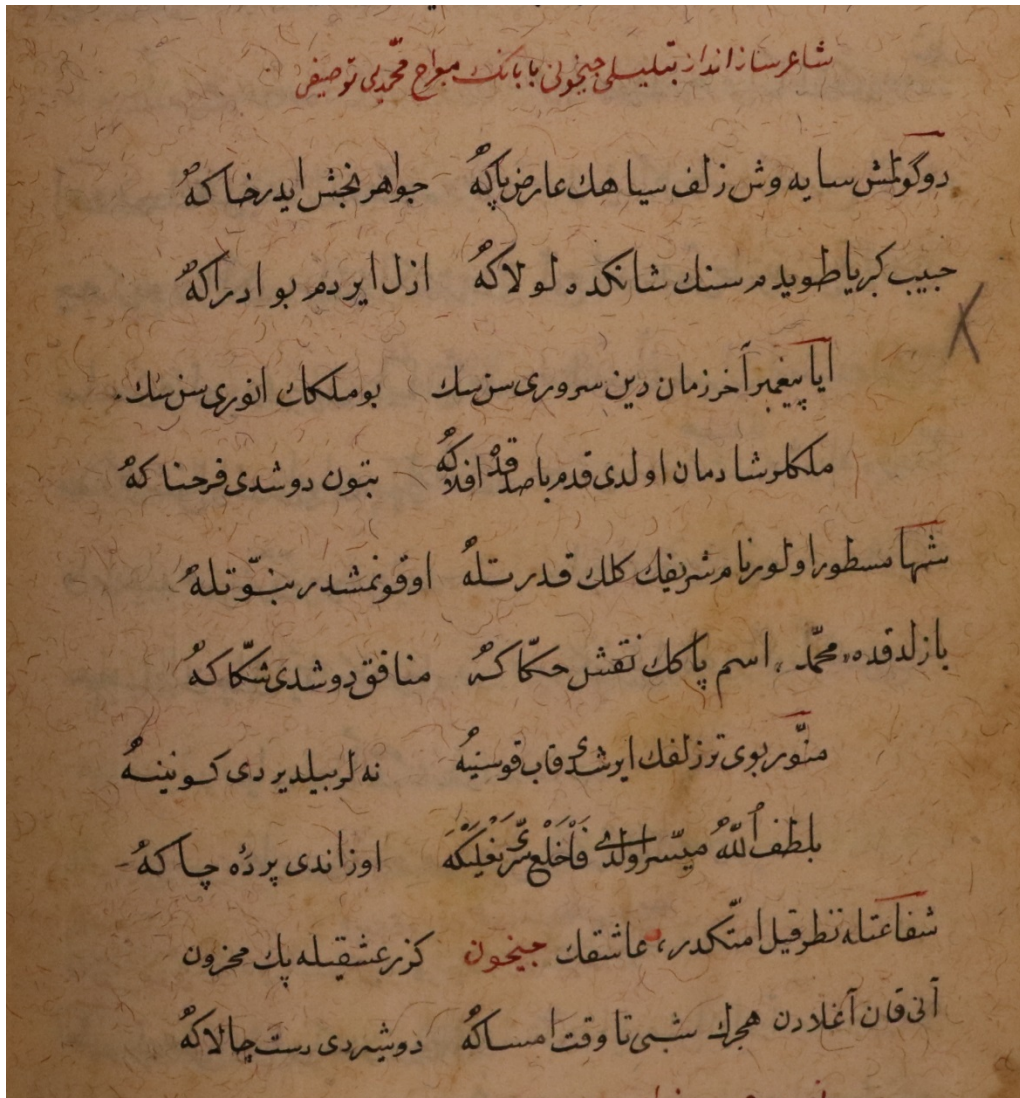 شاعر سناز انداز تبلیسلی جیحونی بابانك معراج محمّدیی توصیفی
دوگولمش سایه وش زلف سیاهك عارض پاكهٔ جواهر بخش ایدر خاكهٔ
حبیب كبریا طویدم سنك شانكده لولاكهٔ ازل ایردم بو ادراكهٔ
ایا پیغمبر آخر زمان دین سروری سن سك بو ملكك انوری سن سك
ملكلر شادمان اولدی قدم باصدقدهٔ افلاكهٔ بتون دوشدی فرحناكهٔ
شها مسطور اولور نام شریفك كلك قدرتلهٔ اوقونمشدر نبوّتلهٔ
یازلدقده محمّد اسم پاكك نقش حكّاكهٔ منافق دوشدی شكّاكهٔ
منوّر بوی تر زلفك ایرشدی قاب قوسینهٔ نه لر بیلدیردی كونینهٔ
بلطف اللّٰه میسّر اولدی فَاخْلَعْ سرّ نَعْلَیْكَهَ اوزاندی پردهٔ چاكهٔ
شفاعتله نظر قیل امّتكدر، عاشقك جیحون كزر عشقیله پك محزون
آنی قان آغلادن هجرك شبی تا وقت امساكهٔ دوشیردی دست چالاكهٔ